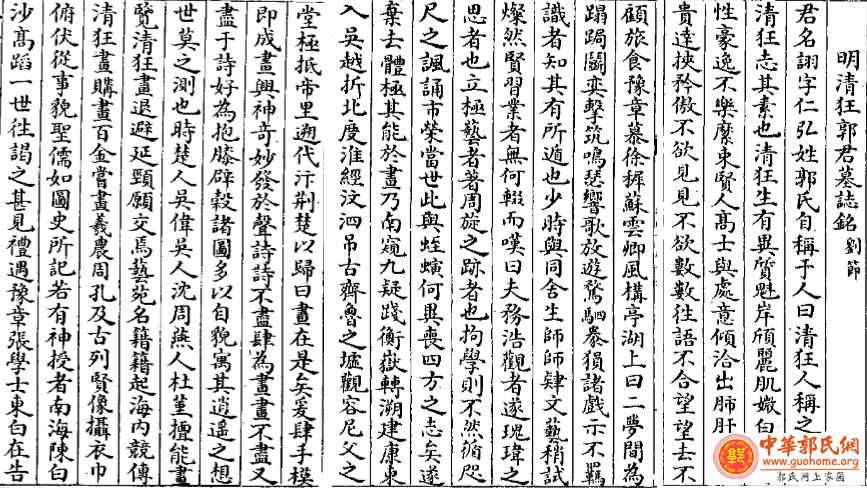 明清狂郭君墓誌銘 劉節
君名詡字仁弘姓郭氏自稱于人曰清狂人稱之
清狂志其素也清狂生有異質魁岸頎麗肌嫩白
性豪逸不樂縻束賢人高士與處意傾洽出肺肝
貴達挾矜傲不欲見見不欲數數往語不合望望去不
顧旅食豫章慕徐穉蘇雲卿風構亭湖上曰二夢間為
蹋跼鬬奕擊筑鳴瑟響歌放遊騖駟豢狽諸戲示不羈
識者知其有所遁也少時與同舍生師師肄文藝稍試
燦然賢習業者無何輟而嘆曰夫務浩觀者遂瑰瑋之
思者也立極藝者著周旋之跡者也拘學則不然循咫
尺之諷誦市榮當世此與蛭螾何異喪四方之志矣遂
棄去體極其能於畫乃南窺九疑踐衡嶽轉溯建康東
入吳越折北度淮經汶泗吊古齊魯之墟觀容尼父之
堂極抵帝里遡代汴荆楚以歸曰畫在是矣爰肆手模
即成畫興神奇妙發於聲詩詩不盡肆為畫畫不盡又
盡于詩好為抱膝辟穀諸圖多以自貌寓其逍遥之想
世莫之測也時楚人吳偉吳人沈周燕人杜堇擅能畫
覽清狂畫退避延頸願交焉藝苑名籍籍起海内競傳
清狂畫購畫百金嘗畫羲農周孔及古列賢像攝衣巾
俯伏從事貌聖儒如圖史所記若有神授者南海陳白
沙高蹈一世往謁之甚見禮遇豫章張學士東白在告
中華郭氏網
www.guohome.org
郭氏网上家園